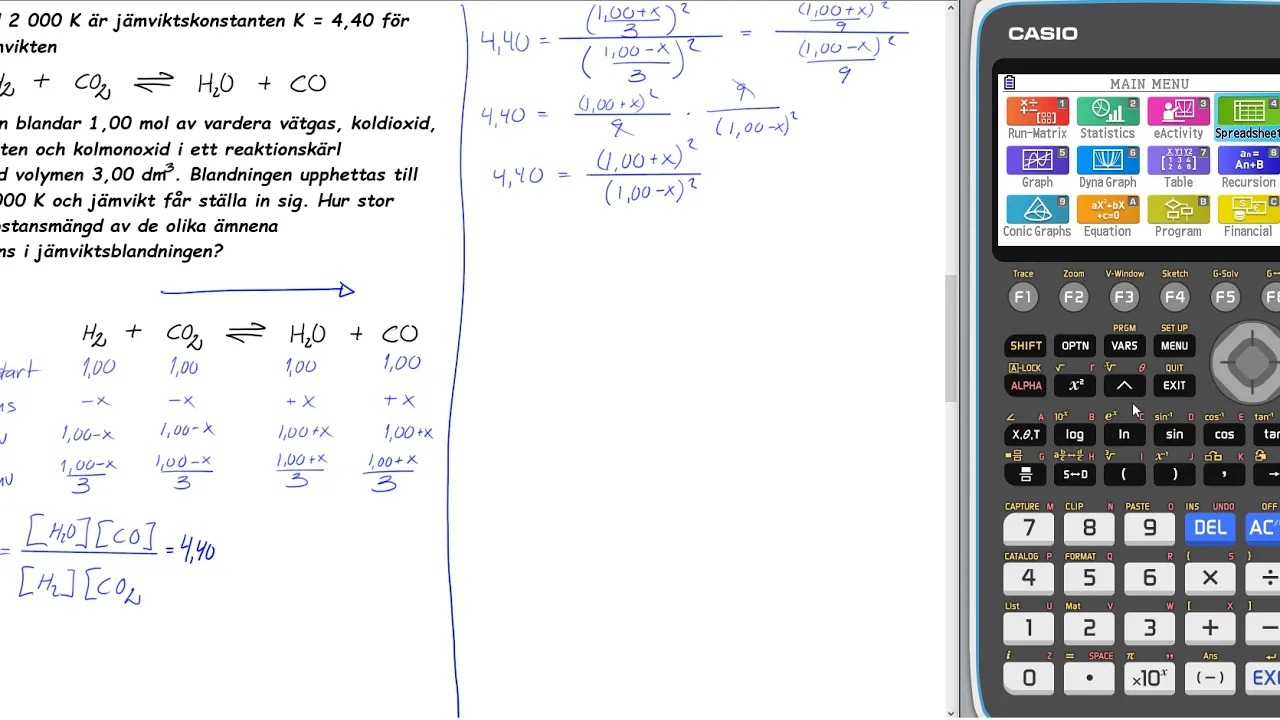 2 000 K är jämviktskonstanten K = 4,40 för
mvikten
H₂ + CO₂ ⇌ H₂O + CO
n blandar 1,00 mol av vardera vätgas, koldioxid,
ten och kolmonoxid i ett reaktionskärl
d volymen 3,00 dm³. Blandningen upphettas till
000 K och jämvikt får ställa in sig. Hur stor
bstansmängd av de olika ämnena
ns i jämviktsblandningen?
H₂ + CO₂ ⇌ H₂O + CO
tart 1,00 1,00 1,00 1,00
ms −x −x +x +x
v 1,00−x 1,00−x 1,00+x 1,00+x
mv (1,00−x)/3 (1,00−x)/3 (1,00+x)/3 (1,00+x)/3
= [H₂O][CO] / [H₂][CO₂ = 4,40
4,40 = ((1,00+x)/3)² / ((1,00−x)/3)² = ((1,00+x)²/9) / ((1,00−x)²/9)
4,40 = (1,00+x)²/9 · 9/(1,00−x)²
4,40 = (1,00+x)² / (1,00−x)²
CASIO
MAIN MENU
1 2 3 4
Run-Matrix Statistics eActivity Spreadsheet
5 6 7 8
Graph Dyna Graph Table Recursion
9 A B C
Conic Graphs Equation Program Financial
Trace Zoom V-Window Sketch G-Solv G↔
F1 F2 F3 F4 F5 F6
PRGM SET UP
SHIFT OPTN VARS MENU
A-LOCK √ r ˣ√ θ QUIT
ALPHA x² ^ EXIT
∠ A 10ˣ B eˣ C sin⁻¹ D cos⁻¹ E tan⁻¹
X,θ,T log ln sin cos tan
G a b/c↔d/c H ³√ I x⁻¹ J K L
S↔D ( ) , →
CAPTURE M CLIP N PASTE O INS UNDO OFF
7 8 9 DEL AC
CATALOG P FORMAT Q R { S }
4 5 6 × ÷
List U Mat V W [ X ]
1 2 3 + −
i Z = SPACE π ,, Ans
0 • ×10ˣ (−) EXE